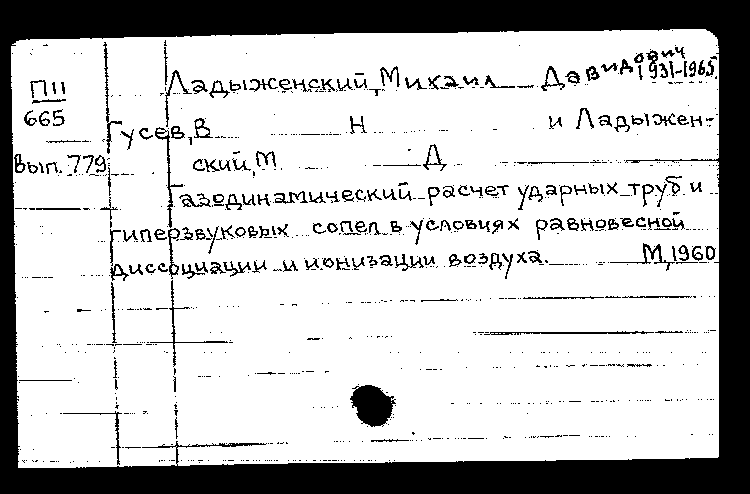 Ладыженский, Михаил Давидович
1931-1965
П11
665
Вып. 779
Гусев, В Н и Ладыжен-
ский, М Д
Газединамический расчет ударных труб и
гиперзвуковых сопел в условиях равновесной
диссоциации и ионизации воздуха. М, 1960